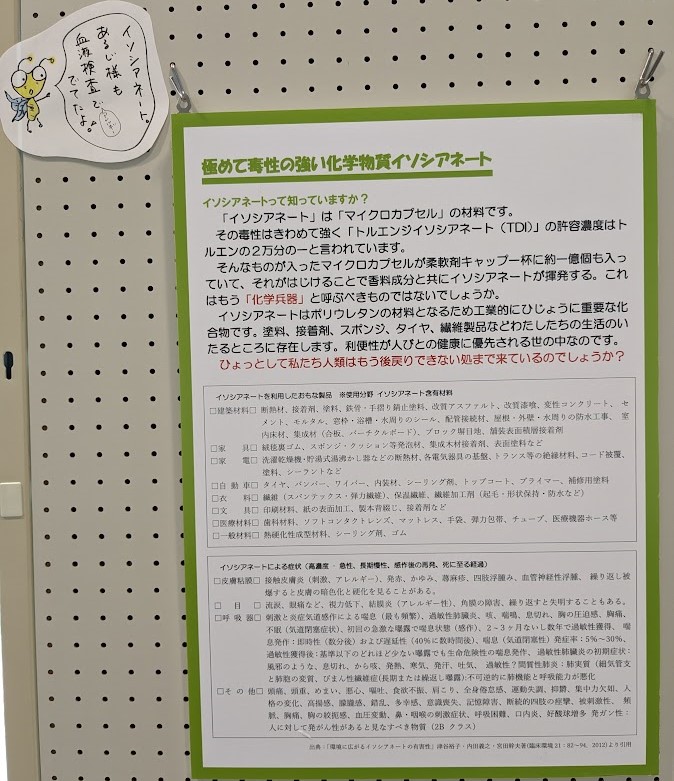 イソシアネート。
あるじ様も
血液検査で
でてたよ。
極めて毒性の強い化学物質イソシアネート
イソシアネートって知っていますか？
「イソシアネート」は「マイクロカプセル」の材料です。
その毒性はきわめて強く「トルエンジイソシアネート（TDI）」の許容濃度はト
ルエンの２万分の一と言われています。
そんなものが入ったマイクロカプセルが柔軟剤キャップ一杯に約一億個も入っ
ていて、それがはじけることで香料成分と共にイソシアネートが揮発する。これ
はもう「化学兵器」と呼ぶべきものではないでしょうか。
イソシアネートはポリウレタンの材料となるため工業的にひじょうに重要な化
合物です。塗料、接着剤、スポンジ、タイヤ、繊維製品などわたしたちの生活のい
たるところに存在します。利便性が人びとの健康に優先される世の中なのです。
ひょっとして私たち人類はもう後戻りできない処まで来ているのでしょうか？
イソシアネートを利用したおもな製品　※使用分野 イソシアネート含有材料
□建築材料□ 断熱材、接着剤、塗料、鉄骨・手摺り錆止塗料、改質アスファルト、改質漆喰、変性コンクリート、セ
メント、モルタル、窓枠・浴槽・水周りのシール、配管接続材、屋根・外壁・水周りの防水工事、 室
内床材、集成材（合板、パーチクルボード）、ブロック塀目地、舗装表面積層接着剤
□家　　具□ 絨毯裏ゴム、スポンジ・クッション等発泡材、集成木材接着剤、表面塗料など
□家　　電□ 洗濯乾燥機・貯湯式湯沸かし器などの断熱材、各電気器具の基盤、トランス等の絶縁材料、コード被覆、
塗料、シーラントなど
□自 動 車□ タイヤ、バンパー、ワイパー、内装材、シーリング剤、トップコート、プライマー、補修用塗料
□衣　　料□ 繊維（スパンテックス・弾力繊維）、保温繊維、繊維加工剤（起毛・形状保持・防水など）
□文　　具□ 印刷材料、紙の表面加工、製本背綴じ、接着剤など
□医療材料□ 歯科材料、ソフトコンタクトレンズ、マットレス、手袋、弾力包帯、チューブ、医療機器ホース等
□一般材料□ 熱硬化性成型材料、シーリング剤、ゴム
イソシアネートによる症状（高濃度・急性、長期慢性、感作後の再発、死に至る経過）
□皮膚粘膜□ 接触皮膚炎（刺激、アレルギー）、発赤、かゆみ、蕁麻疹、四肢浮腫み、血管神経性浮腫、 繰り返し被
爆すると皮膚の暗色化と硬化を見ることがある。
□　目　□ 流涙、眼痛など、視力低下、結膜炎（アレルギー性）、角膜の障害、繰り返すと失明することもある。
□呼 吸 器□ 刺激と炎症気道感作による喘息（最も頻繁）、過敏性肺臓炎、咳、喘鳴、息切れ、胸の圧迫感、胸痛、
不眠（気道閉塞症状）、初回の急激な曝露で喘息状態（感作）、2～3ヶ月ないし数年で過敏性獲得、喘
息発作：即時性（数分後）および遅延性（40％に数時間後）、喘息（気道閉塞性）発症率：5％～30％、
過敏性獲得後：基準以下のどれほど少ない曝露でも生命危険性の喘息発作、過敏性肺臓炎の初期症状：
風邪のような、息切れ、から咳、発熱、寒気、発汗、吐気、 過敏性？間質性肺炎：肺実質（細気管支
と肺胞の変質、びまん性繊維症(長期または繰返し曝露):不可逆的に肺機能と呼吸能力が悪化
□そ の 他□ 頭痛、頭重、めまい、悪心、嘔吐、食欲不振、肩こり、全身倦怠感、運動失調、抑鬱、集中力欠如、人
格の変化、高揚感、朦朧感、錯乱、多幸感、意識喪失、記憶障害、断続的四肢の痙攣、被刺激性、 頻
脈、胸痛、胸の絞扼感、血圧変動、鼻・咽喉の刺激症状、呼吸困難、口内炎、好酸球増多 発ガン性：
人に対して発がん性があると見なすべき物質（2B クラス）
出典：「環境に広がるイソシアネートの有害性」津谷裕子・内田義之・宮田幹夫(臨床環境 21：82～94，2012)より引用